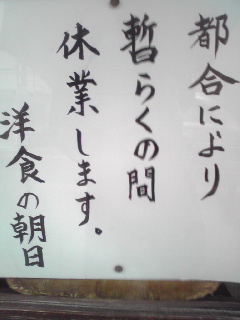 都合により
暫らくの間
休業します。
洋食の朝日